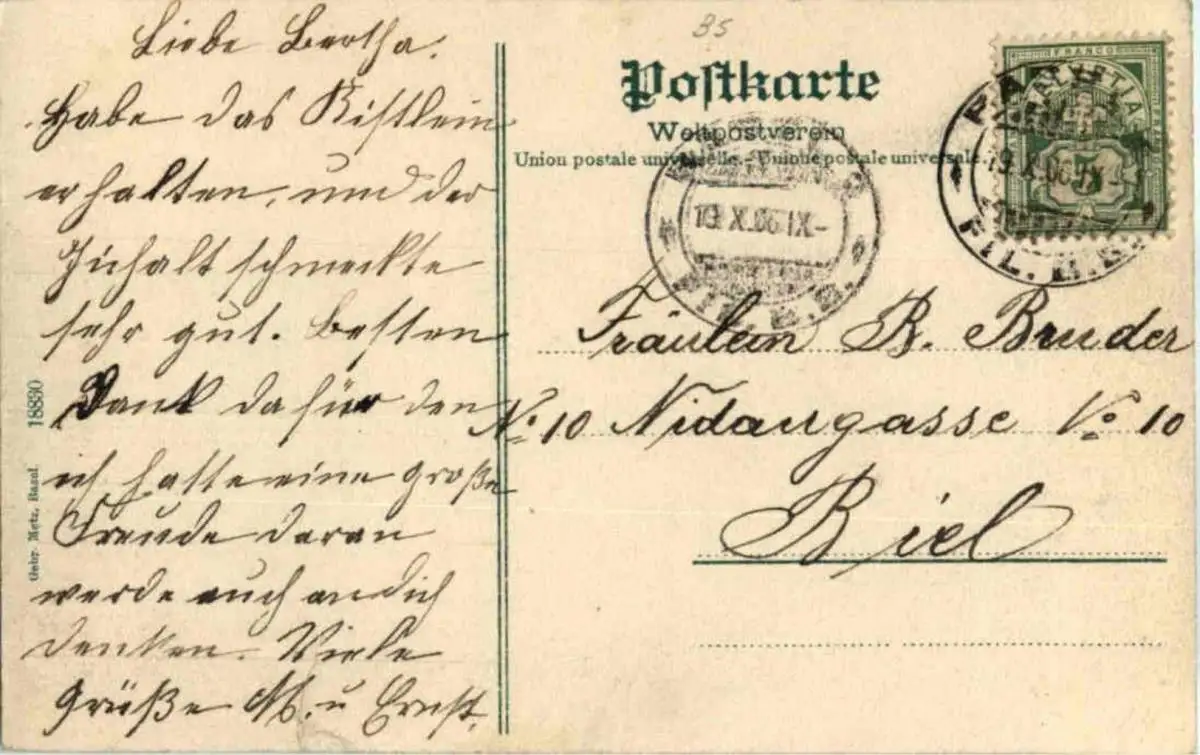 Liebe Bertha.
Habe das Kistlein
erhalten, und der
Inhalt schmeckte
sehr gut. Besten
Dank dafür den
ich hatte eine große
Freude daran
werde auch an dich
denken. Viele
Grüße M. u Ernst.
Gebr. Metz, Basel. 18830
35
Postkarte
Weltpostverein
Union postale universelle. - Unione postale universale.
FRANCO
HELVETIA
5
19.X.06.IX-
FIL.
19.X.06.IX-
FIL.
Fräulein B. Bruder
No 10 Nidaugasse No 10
Biel